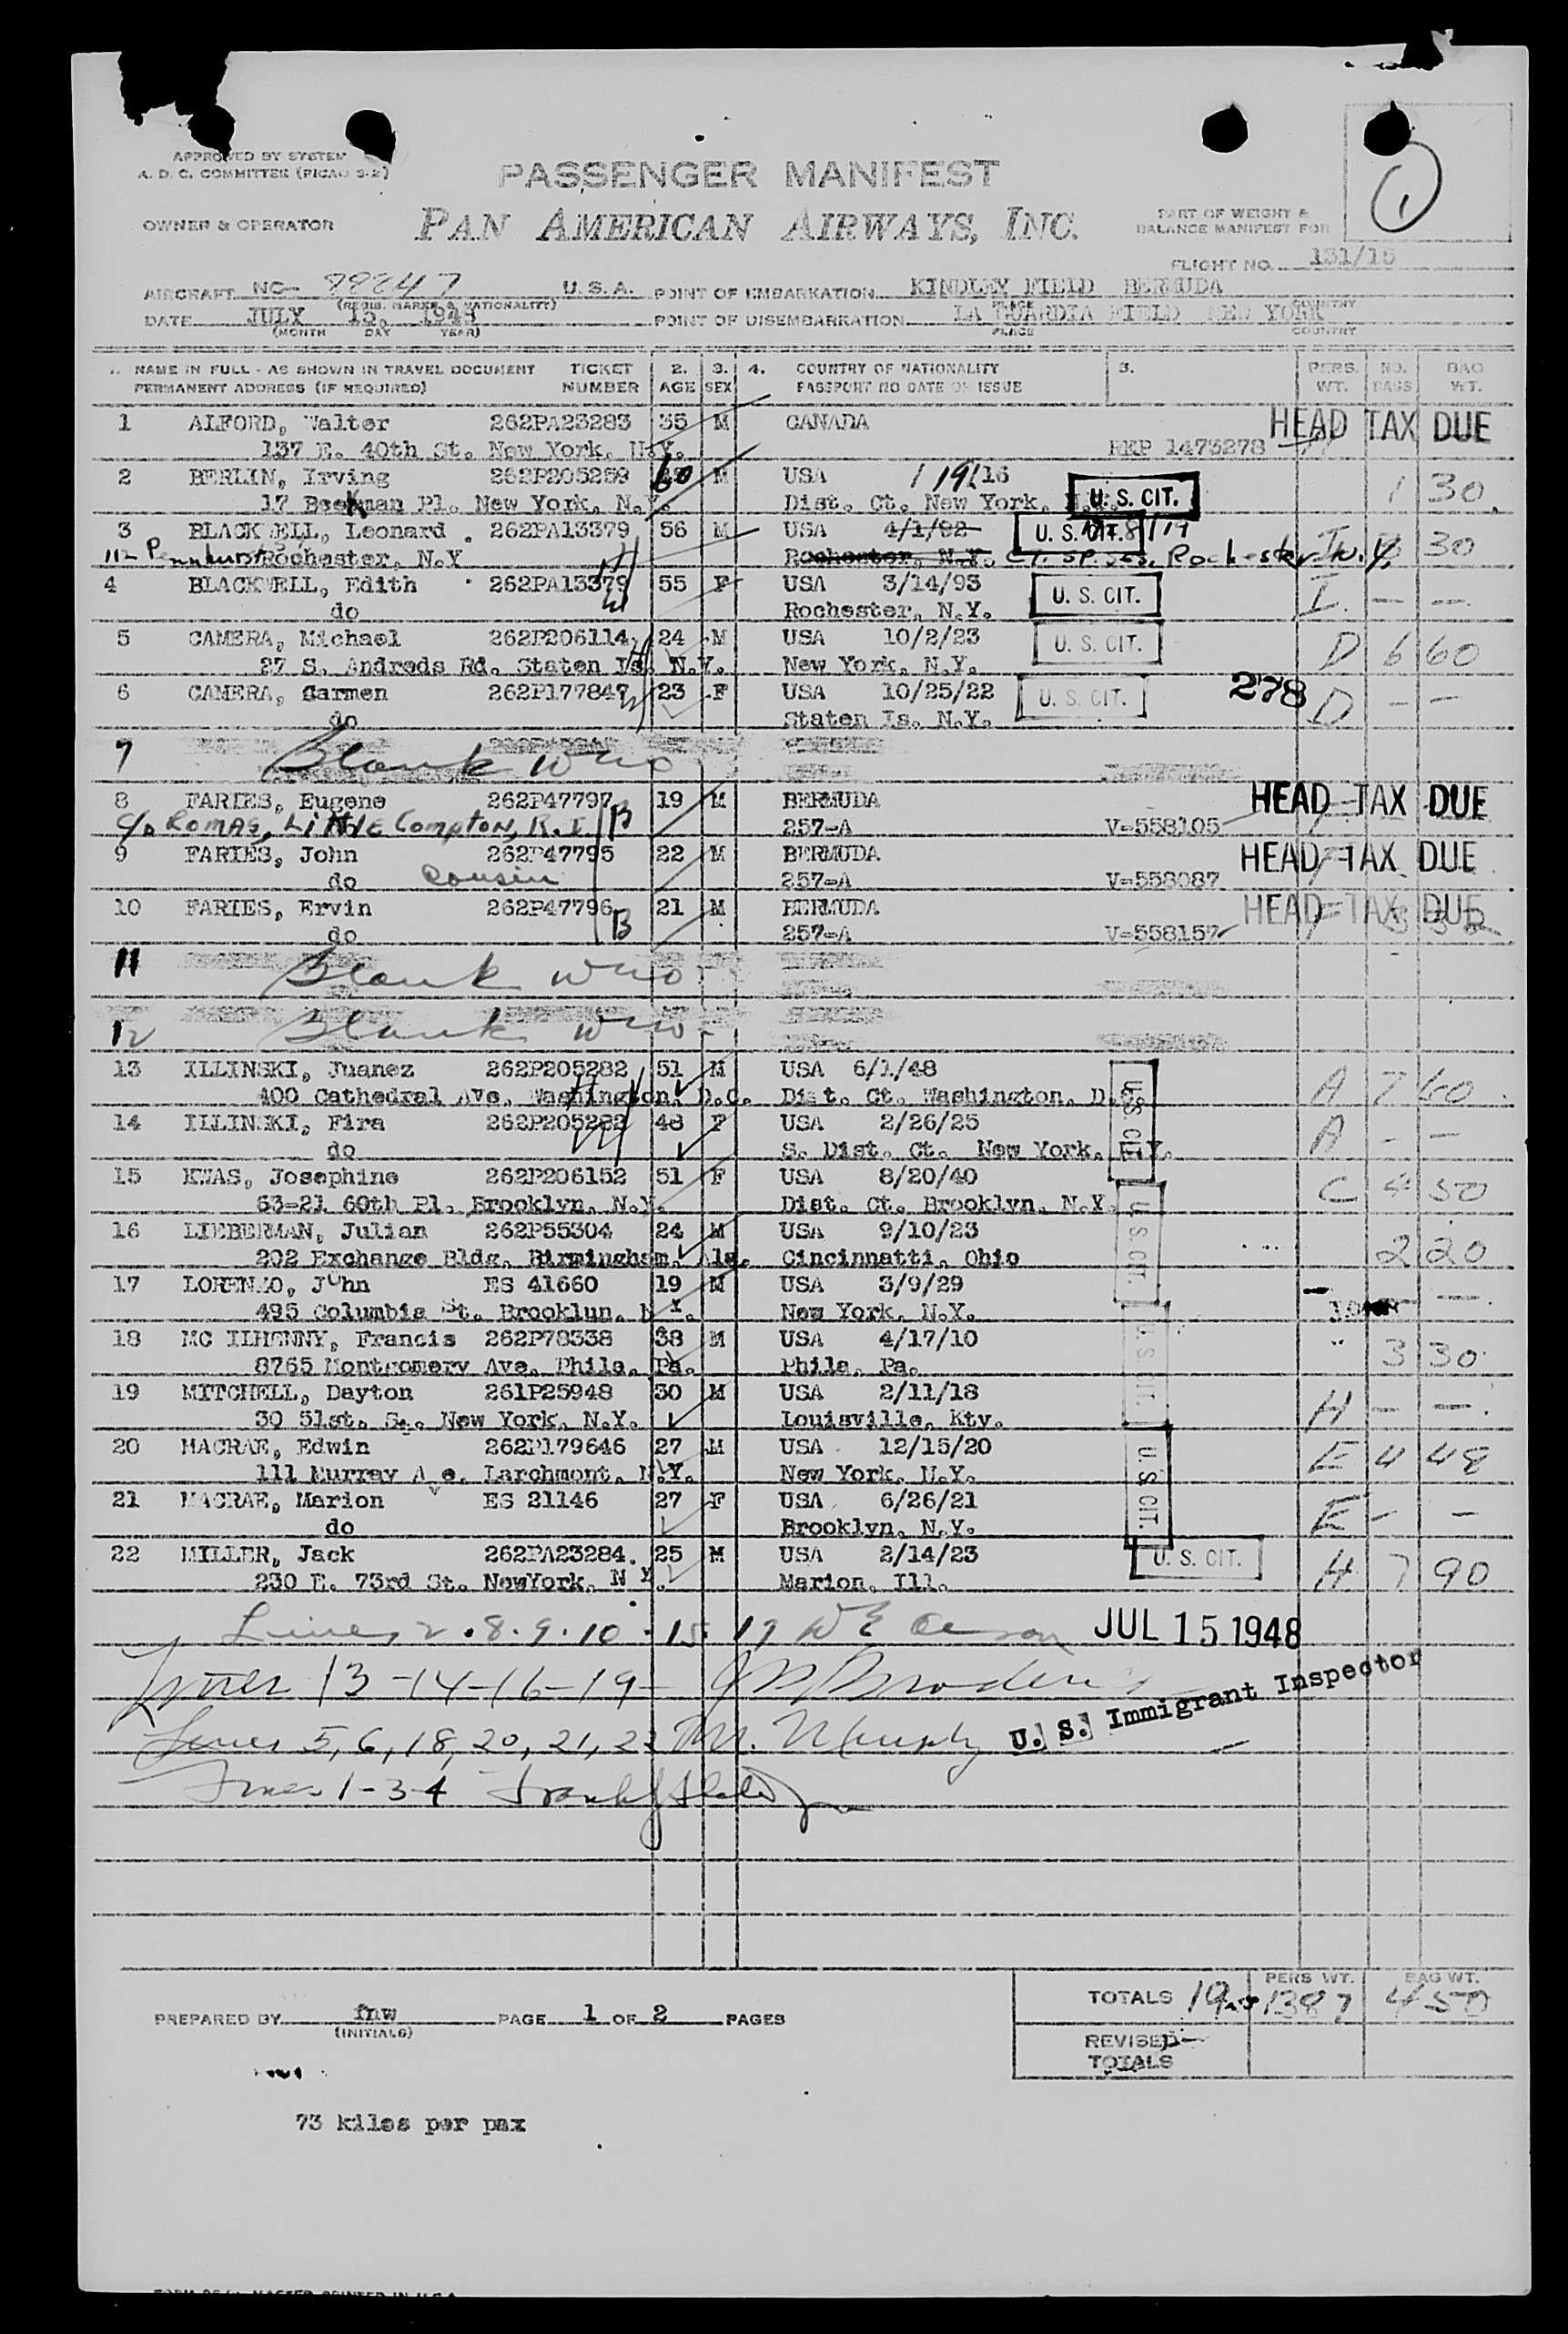 APPROVED BY SYSTEM
A. D. C. COMMITTEE (PICAO S-2)
PASSENGER MANIFEST
OWNER & OPERATOR
PAN AMERICAN AIRWAYS, INC.
PART OF WEIGHT &
BALANCE MANIFEST FOR
1
FLIGHT NO. 131/15
AIRCRAFT NC- 88847 U.S.A. POINT OF EMBARKATION KINDLEY FIELD BERMUDA
(REGIS. MARKS & NATIONALITY) PLACE COUNTRY
DATE JULY 15, 1948 POINT OF DISEMBARKATION LA GUARDIA FIELD NEW YORK
(MONTH DAY YEAR) PLACE COUNTRY
NAME IN FULL - AS SHOWN IN TRAVEL DOCUMENT TICKET 2. 3. 4. COUNTRY OF NATIONALITY 5. PERS. NO. BAG
PERMANENT ADDRESS (IF REQUIRED) NUMBER AGE SEX PASSPORT NO DATE OF ISSUE WT. BAGS WT.
1 ALFORD, Walter 262PA23283 35 M CANADA HEAD TAX DUE
137 E. 40th St. New York, N.Y. REP 1475278
2 BERLIN, Irving 262P205259 60 M USA 16 1 30
17 Beekman Pl. New York, N.Y. Dist. Ct. New York, N.Y. U. S. CIT.
3 BLACKWELL, Leonard 262PA13379 56 M USA 4/1/92 U. S. CIT. 8/19 I 30
112 Pennhurst Rochester, N.Y Rochester, N.Y. Ct. Sp. Ses. Rochester N.Y.
4 BLACKWELL, Edith 262PA13379 55 F USA 3/14/93 U. S. CIT. I - -
do Rochester, N.Y.
5 CAMERA, Michael 262P206114 24 M USA 10/2/23 U. S. CIT. D 6 60
27 S. Andreds Rd. Staten Is. N.Y. New York, N.Y.
6 CAMERA, Carmen 262P177847 23 F USA 10/25/22 U. S. CIT. 278 D - -
do Staten Is. N.Y.
7 Blank
8 FARIES, Eugene 262P47797 B 19 M BERMUDA HEAD TAX DUE
c/o ROMAG, Little Compton, R.I 257-A V-558105
9 FARIES, John 262P47795 22 M BERMUDA HEAD TAX DUE
do Cousin 257-A V-558087
10 FARIES, Ervin 262P47796 B 21 M BERMUDA HEAD TAX DUE
do 257-A V-558157
11 Blank
12 Blank
13 ILLINSKI, Juanez 262P205282 51 M USA 6/1/48 U. S. CIT. A 7 60
400 Cathedral Ave. Washington, D.C. Dist. Ct. Washington, D.C.
14 ILLINSKI, Fira 262P205282 48 F USA 2/26/25 A - -
do S. Dist. Ct. New York, N.Y.
15 KWAS, Josephine 262P206152 51 F USA 8/20/40 U. S. CIT. C 4 50
63-21 60th Pl. Brooklyn, N.Y. Dist. Ct. Brooklyn, N.Y.
16 LIEBERMAN, Julian 262P55304 24 M USA 9/10/23 2 20
202 Exchange Bldg. Birmingham, Ala. Cincinnatti, Ohio
17 LORENZO, John ES 41660 19 M USA 3/9/29 U. S. CIT.
495 Columbia St. Brooklun, N Y. New York, N.Y.
18 MC ILHENNY, Francis 262P78338 38 M USA 4/17/10 3 30
8765 Montgomery Ave. Phila. Pa. Phila. Pa.
19 MITCHELL, Dayton 261P25948 30 M USA 2/11/18 H - -
30 51st. S.. New York, N.Y. Louisville, Kty.
20 MACRAE, Edwin 262P179646 27 M USA 12/15/20 U. S. CIT. E 4 48
111 Murray Ave. Larchmont, N.Y. New York, N.Y.
21 MACRAE, Marion ES 21146 27 F USA 6/26/21 E - -
do Brooklyn, N.Y.
22 MILLER, Jack 262PA23284 25 M USA 2/14/23 U. S. CIT. H 7 90
230 E. 73rd St. NewYork, N Y. Marion, Ill.
Lines 2.8.9.10.15 17 JUL 15 1948
Lines 13-14-16-19-
Lines 5, 6, 18, 20, 21, 22 M. Murphy U. S. Immigrant Inspector
Lines 1-3-4
TOTALS 19 PERS WT. 1387 BAG WT. 450
PREPARED BY fnw PAGE 1 OF 2 PAGES
(INITIALS)
REVISED
TOTALS
73 kilos per pax